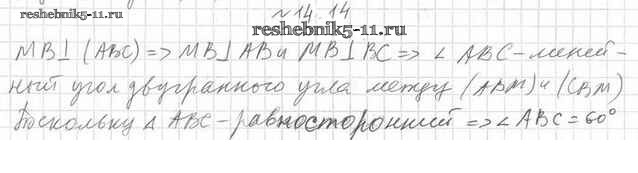 reshebnik5-11.ru
№14.14
reshebnik5-11.ru
MB⊥(ABC) => MB⊥AB и MB⊥BC => ∠ABC - линей-
ный угол двугранного угла между (ABM) и (CBM)
Поскольку △ABC - равносторонний => ∠ABC = 60°